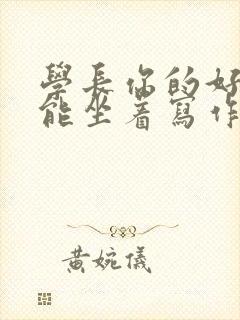 學長你的好
能坐着寫作
黃婉儀